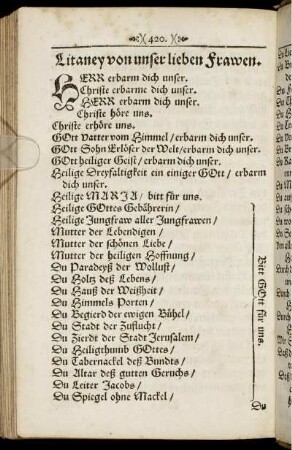 )( 420. )(
Litaney von unser lieben Frawen.
HERR erbarm dich unser.
Christe erbarme dich unser.
HERR erbarm dich unser.
Christe höre uns.
Christe erhöre uns.
GOtt Vatter vom Himmel / erbarm dich unser.
GOtt Sohn Erlöser der Welt / erbarm dich unser.
GOtt heiliger Geist / erbarm dich unser.
Heilige Dreyfaltigkeit ein einiger GOtt / erbarm
dich unser.
Heilige MARIA / bitt für uns.
Heilige GOttes Gebährerin /
Heilige Jungfraw aller Jungfrawen /
Mutter der Lebendigen /
Mutter der schönen Liebe /
Mutter der heiligen Hoffnung /
Du Paradeyß der Wollust /
Du Holtz deß Lebens /
Du Hauß der Weißheit /
Du Himmels Porten /
Du Begierd der ewigen Bühel /
Du Stadt der Zuflucht /
Du Zierdt der Stadt Jerusalem /
Du Heiligthumb GOttes /
Du Tabernackel deß Bundts /
Du Altar deß gutten Geruchs /
Du Leiter Jacobs /
Du Spiegel ohne Mackel /
Bitt GOtt für uns.
Du